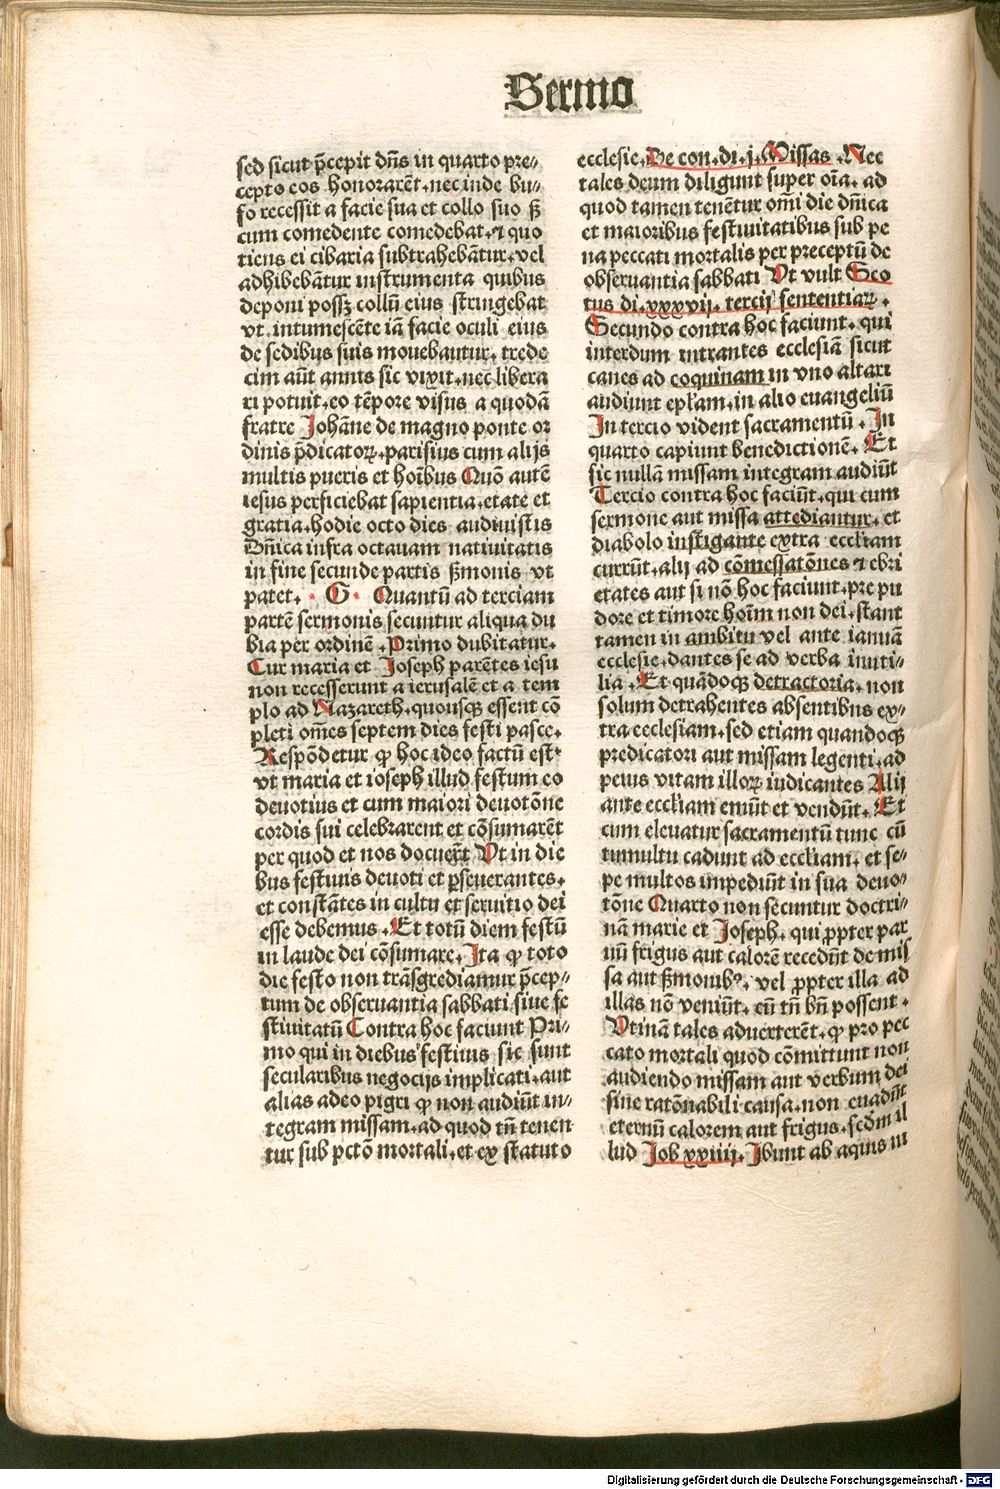 Sermo
sed sicut p̄cepit dn̄s in quarto pre⸗
cepto eos honorarēt. nec inde bu⸗
fo recessit a facie sua et collo suo sꝫ
cum comedente comedebat. ⁊ quo
tiens ei cibaria subtrahebātur. vel
adhibebātur instrumenta quibus
deponi possꝫ collū eius stringebat
vt intumescēte iā facie oculi eius
de sedibus suis mouebantur. trede
cim aūt annis sic vixit. nec libera
ri potuit. eo tēpore visus a quodā
fratre Johāne de magno ponte or
dinis p̄dicatoꝝ. parisius cum alijs
multis pueris et hoībus Quō autē
iesus perficiebat sapientia. etate et
gratia. hodie octo dies audiuistis
Dn̄ica infra octauam natiuitatis
in fine secunde partis ẜmonis vt
patet. G. Quantū ad terciam
partē sermonis secuntur aliqua du
bia per ordinē. Primo dubitatur.
Cur maria et Joseph parētes iesu
non recesserunt a ierusalē et a tem
plo ad Nazareth. quousqꝫ essent cō
pleti om̄es septem dies festi pasce.
Respōdetur ꝙ hoc ideo factū est.
vt maria et ioseph illud festum eo
deuotius et cum maiori deuotōne
cordis sui celebrarent et cōsumarēt
per quod et nos docuerūt Vt in die
bus festiuis deuoti et ꝑseuerantes.
et constātes in cultu et seruitio dei
esse debemus. Et totū diem festū
in laude dei cōsumare. Ita ꝙ toto
die festo non trāsgrediamur p̄cep⸗
tum de obseruantia sabbati siue fe
stiuitatū Contra hoc faciunt Pri⸗
mo qui in diebus festiuis sic sunt
secularibus negocijs implicati. aut
alias adeo pigri ꝙ non audiūt in⸗
tegram missam. ad quod tn̄ tenen
tur sub pctō mortali. et ex statuto
ecclesie. De con. di. j. Missas. Nec
tales deum diligunt super oīa. ad
quod tamen tenētur om̄i die dn̄ica
et maioribus festiuitatibus sub pe
na peccati mortalis per preceptū de
obseruantia sabbati Vt vult Sco
tus di. xxxvij. tercij sententiaꝝ.
Secundo contra hoc faciunt. qui
interdum intrantes ecclesiā sicut
canes ad coquinam in vno altari
audiunt epl̄am. in alio euangeliū
In tercio vident sacramentū. In
quarto capiunt benedictionē. Et
sic nullā missam integram audiūt
Tercio contra hoc faciūt. qui cum
sermone aut missa attediantur. et
diabolo instigante extra eccl̄iam
currūt. alij ad cōmessatōnes ⁊ ebri
etates aut si nō hoc faciunt. pre pu
dore et timore hoīm non dei. stant
tamen in ambitu vel ante ianuā
ecclesie. dantes se ad verba inuti⸗
lia. Et quādoqꝫ detractoria. non
solum detrahentes absentibus ex⸗
tra ecclesiam. sed etiam quandoqꝫ
predicatori aut missam legenti. ad
peius vitam illoꝝ iudicantes Alij
ante eccl̄iam emūt et vendūt. Et
cum eleuatur sacramentū tunc cū
tumultu cadunt ad eccl̄iam. et se⸗
pe multos impediūt in sua deuo⸗
tōne Quarto non secuntur doctri⸗
nā marie et Joseph. qui ꝓpter par
uū frigus aut calorē recedūt de mis
sa aut ẜmonibꝰ. vel ꝓpter illa ad
illas nō veniūt. cū tn̄ bn̄ possent.
Vtinā tales aduerterēt. ꝙ pro pec
cato mortali quod cōmittunt non
audiendo missam aut verbum dei
sine ratōnabili causa. non euadūt
eternū calorem aut frigus. scd̄m il
lud Job xxiiij. Ibunt ab aquis ni
Digitalisierung gefördert durch die Deutsche Forschungsgemeinschaft - DFG